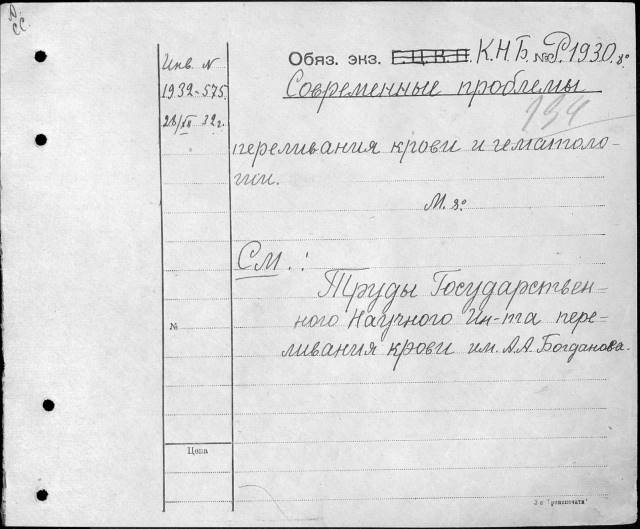 Инв. N
1932-575.
28/XII 32 г.
Обяз. экз. Г.Ц.К.П. К.Н.Б. № Р1930. 8°
Современные проблемы
194
переливания крови и гематоло-
гии.
М. 8°
См.:
Труды Государствен-
ного Научного Ин-та пере-
ливания крови им. А.А. Богданова.
№
Цена